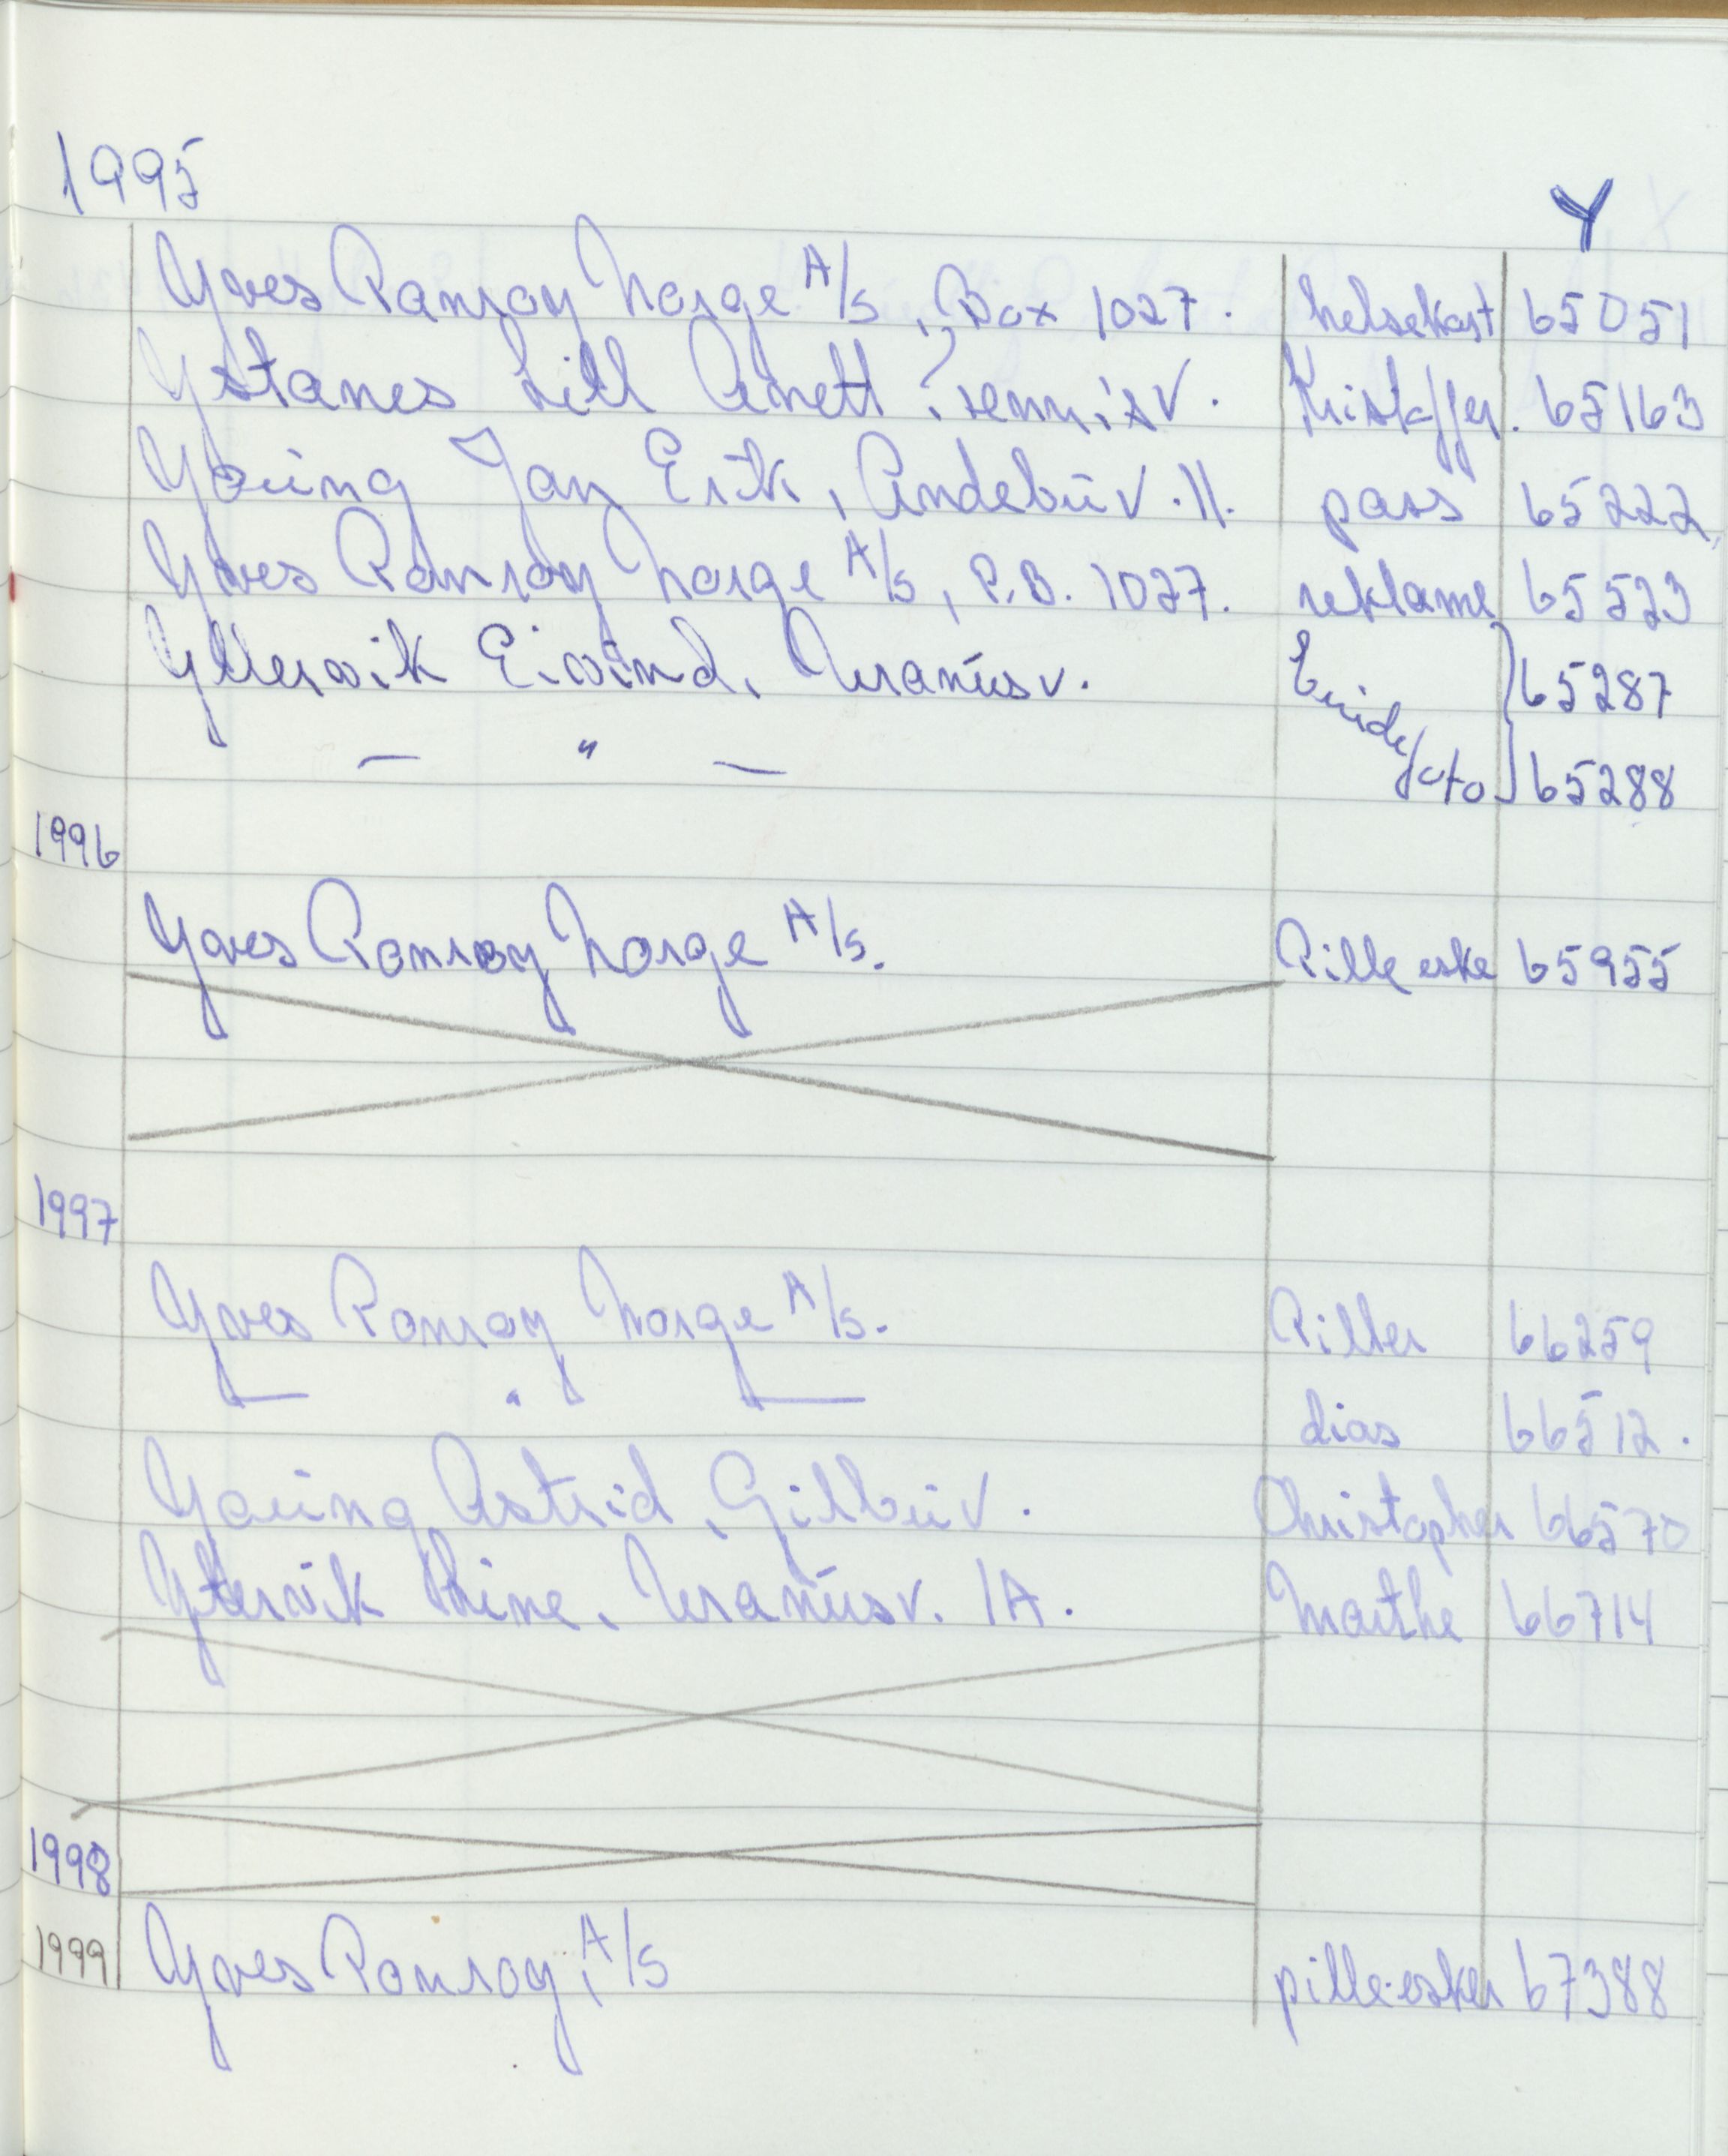 1995
Y
Yves Ponroy Norge A/S, Box 1027. helsekost 65051
Ystanes Lill Anett, v. Kristoffer. 65163
Young Jan Erik, Andebuv. 11. pass 65222
Yves Ponroy Norge A/S, P.B. 1027. reklame 65523
Yttervik Eivind, Uranusv. 65287
— " — foto 65288
1996
Yves Ponroy Norge A/S. Pilleeske 65955
1997
Yves Ponroy Norge A/S. Piller 66259
— " — dias 66512.
Young Astrid, Gilbuv. Christopher 66570
Yttervik Stine, Uranusv. 1A. Marthe 66714
1998
1999 Yves Ponroy, A/S pille-esker 67388